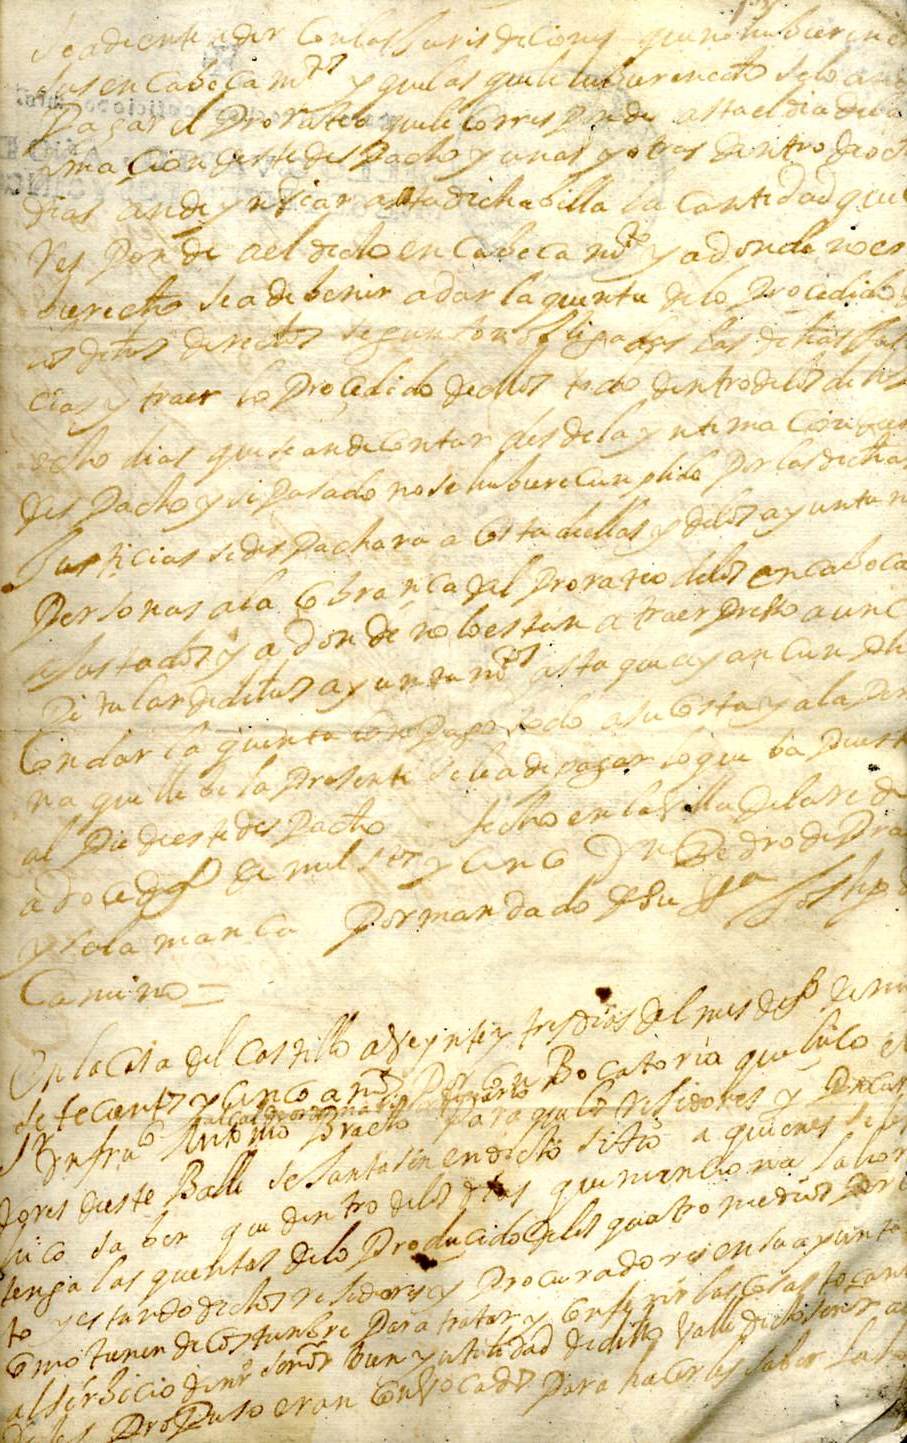 se a de entender con las Jurisdiciones que no hubieren
sus encabecam.tos y que las que le hubieren echo se lo an
Pagar el Prorrateo que le corresponde asta el dia de la
ymacion deste despacho y unas y otras dentro de och
dias an de ynbiar a esta dicha billa la cantidad que
res ponde a el dicho encabecam.to y adonde no es
biere echo se a de benir a dar la quenta de lo Procedido
os dhos derechos segun son obligados las dichas Jus
cias y traer lo Procedido de ellos todo dentro de los dichos
ocho dias que se an de contar desde la yntimacion
des Pacho y si Pasado no se hubiere cumplido Por las dichas
Justicias se des Pachara a costa de ellas y de los ayuntam
Personas a la cobranca del Prorrateo de los encabeca
ajustados y a donde no lo estan a traer Preso a un C
Pitular de dichos ayuntam.tos asta que ayan cumpli
Con dar la quenta todo a su costa y a la Per
na que llebe la Presente se le a de pagar lo que ba Puest
al Pie de este des Pacho fecho en la Villa de Laredo
a doce de de mil y cinco Dn Pedro de Pra
y salamanca Por mandado de su Joseph
Camino =
En la Casa del Castillo a Veynte y tres dias del mes de de mi
setecientos y cinco años Por con Bocatoria que hico el
Sr Dn fran.co Antonio Bracho Para que los rejidores y Procura
dores deste Balle se Juntasen en dicho sitio a quienes se les
hico saber que dentro de los dias que menciona
tenga las quentas de lo Producido de los quatro medios Por
to y estando dichos rejidores y Procuradores en su ayunta
como tienen de costumbre Para tratar y conferir las cosas tocan
al serbicio de nro Señor bien y utilidad de dicho Valle dicho señor al
de les Propuso eran conbocados Para hacerles saber